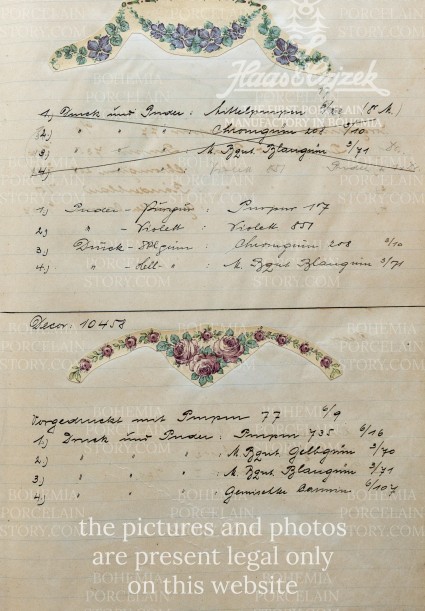 Haas & Czjzek
THE FIRST PORCELAIN
MANUFACTORY IN BOHEMIA
1.) Druck und Puder: Mittelpurpur
2.) " " " : Chromgrün 208 3/10
3.) M. Bgut. Blaugrün 3/71
4.)
1.) Puder - Purpur : Purpur 107
2.) " - Violett : Violett 851
3.) Druck - : Chromgrün 208 3/10
4.) " - Hell - " : M. Bgut Blaugrün 3/71
Decor: 10458
Vorgedruckt mit Purpur 77 6/9
1.) Druck und Puder: Purpur 735 6/16
2.) " " " : M. Bgut Gelbgrün 3/70
3.) " " " : M. Bgut. Blaugrün 3/71
4.) " " " : Gemischte 6/107
BOHEMIA
PORCELAIN
STORY.COM
the pictures and photos
are present legal only
on this website